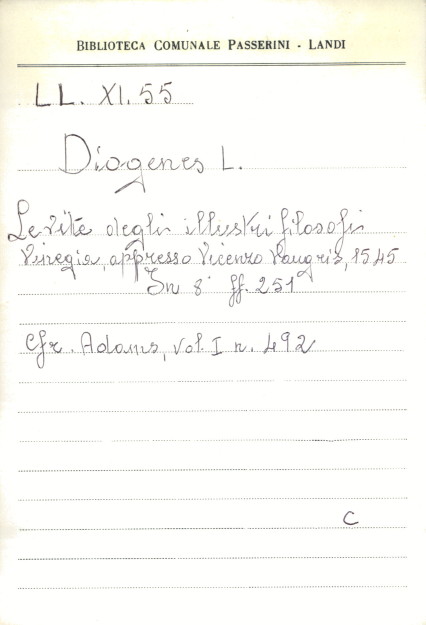 BIBLIOTECA COMUNALE PASSERINI - LANDI
LL. XI. 55
Diogenes L.
Le vite degli illustri filosofi
Vinegia, appresso Vicenzo Vaugris, 1545
In 8° ff. 251
Cfr. Adams, vol. I n. 492
C